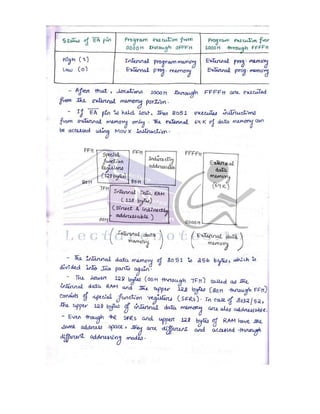 Status of EA pin
Program execution from 0000H through 0FFFH
Program execution from 1000H through FFFFH
High (1)
Internal program memory
External prog. memory
Low (0)
External prog. memory
External prog. memory
- After that, locations 1000H through FFFFH are executed
from the external memory portion.
- If EA pin is held low, then 8051 executes instructions
from external memory only. The external 64K of data memory can
be accessed using MOVX instruction.
FFH
Special function registers (128 bytes)
80H
FFH
Indirectly addressable
80H
7FH
Internal Data RAM
(128 bytes)
(Direct & indirectly
addressable)
00H
FFFFH
External data memory (64K)
0000H
(Internal data memory)
(External data memory)
- The internal data memory of 8051 is 256 bytes, which is
divided into two parts again.
- The lower 128 bytes (00H through 7FH) called as the
internal data RAM and the upper 128 bytes (80H through FFH)
consists of special function registers (SFRs). In case of 8032/52,
the upper 128 bytes of internal data memory are also addressable.
- Even though the SFRs and upper 128 bytes of RAM have the
same address space, they are different and accessed through
different addressing modes.